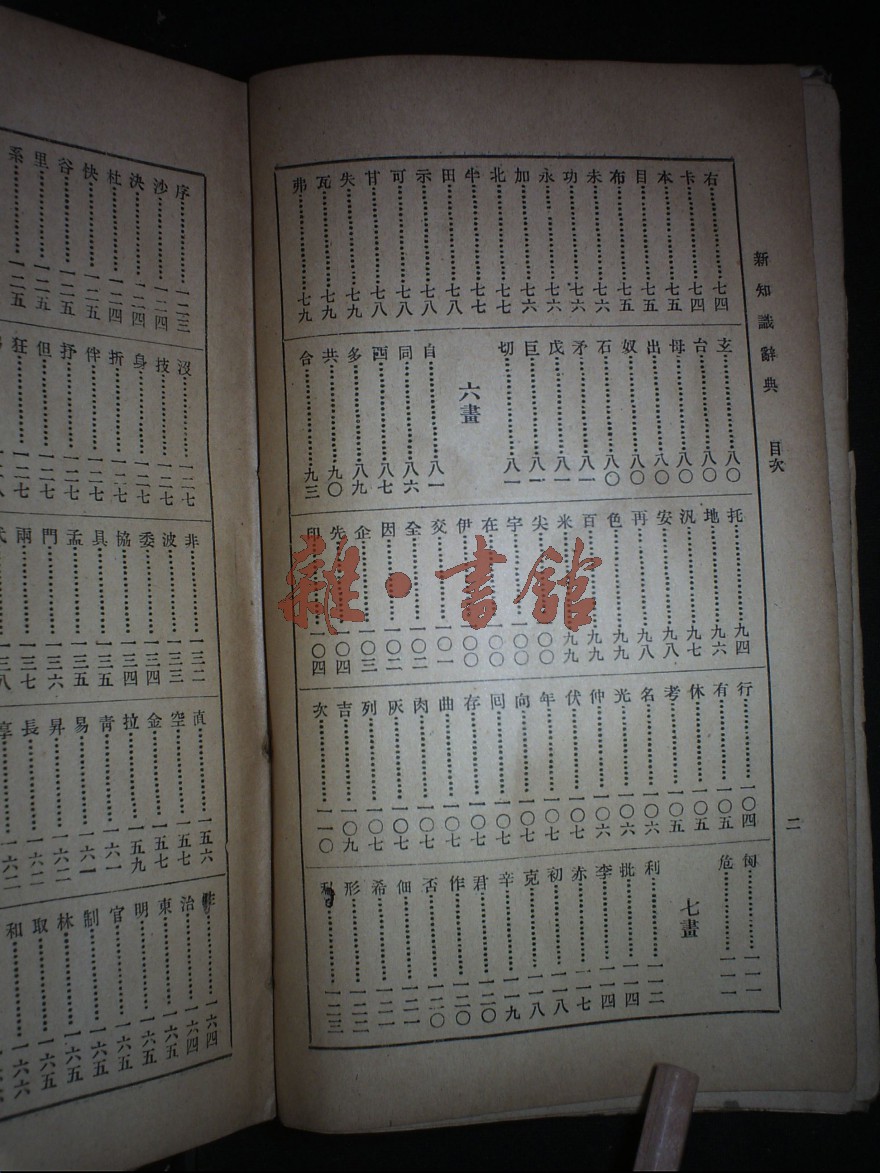 新知識辭典 目次
二
右………七四
卡………七四
本………七五
目………七五
布………七五
未………七六
功………七六
永………七六
加………七六
北………七七
牛………七七
田………七八
示………七八
可………七八
甘………七八
失………七九
瓦………七九
弗………七九
玄………八〇
台………八〇
母………八〇
出………八〇
奴………八〇
石………八〇
矛………八一
戊………八一
巨………八一
切………八一
六畫
自………八一
同………八六
西………八七
多………八九
共………九〇
合………九三
托………九四
地………九六
汎………九七
安………九八
再………九八
色………九九
百………九九
米………九九
尖………一〇〇
宇………一〇〇
在………一〇〇
伊………一〇〇
交………一〇一
全………一〇二
因………一〇二
企………一〇三
先………一〇四
印………一〇四
行………一〇四
有………一〇五
休………一〇五
考………一〇五
名………一〇六
光………一〇六
仲………一〇六
伏………一〇七
年………一〇七
向………一〇七
回………一〇七
存………一〇七
曲………一〇七
肉………一〇七
灰………一〇七
列………一〇七
吉………一〇九
次………一一〇
匈………一一一
危………一一一
七畫
利………一一二
批………一一四
李………一一四
赤………一一七
初………一一八
克………一一八
辛………一一九
君………一二〇
作………一二〇
否………一二〇
佃………一二一
希………一二一
形………一二二
………一二三
序………一二三
沙………一二四
決………一二四
杜………一二四
快………一二五
谷………一二五
里………一二五
系………一二五
沒………一二七
技………一二七
身………一二七
折………一二七
伴………一二七
抒………一二七
但………一二七
狂………一二七
非………一三二
波………一三三
委………一三四
協………一三四
具………一三五
孟………一三五
門………一三六
兩………一三七
直………一五六
空………一五七
金………一五七
拉………一五九
靑………一六一
易………一六一
昇………一六二
長………一六二
享………一六二
………一六四
治………一六四
東………一六五
明………一六五
官………一六五
制………一六五
林………一六五
取………一六五
和………一六六
雜·書館